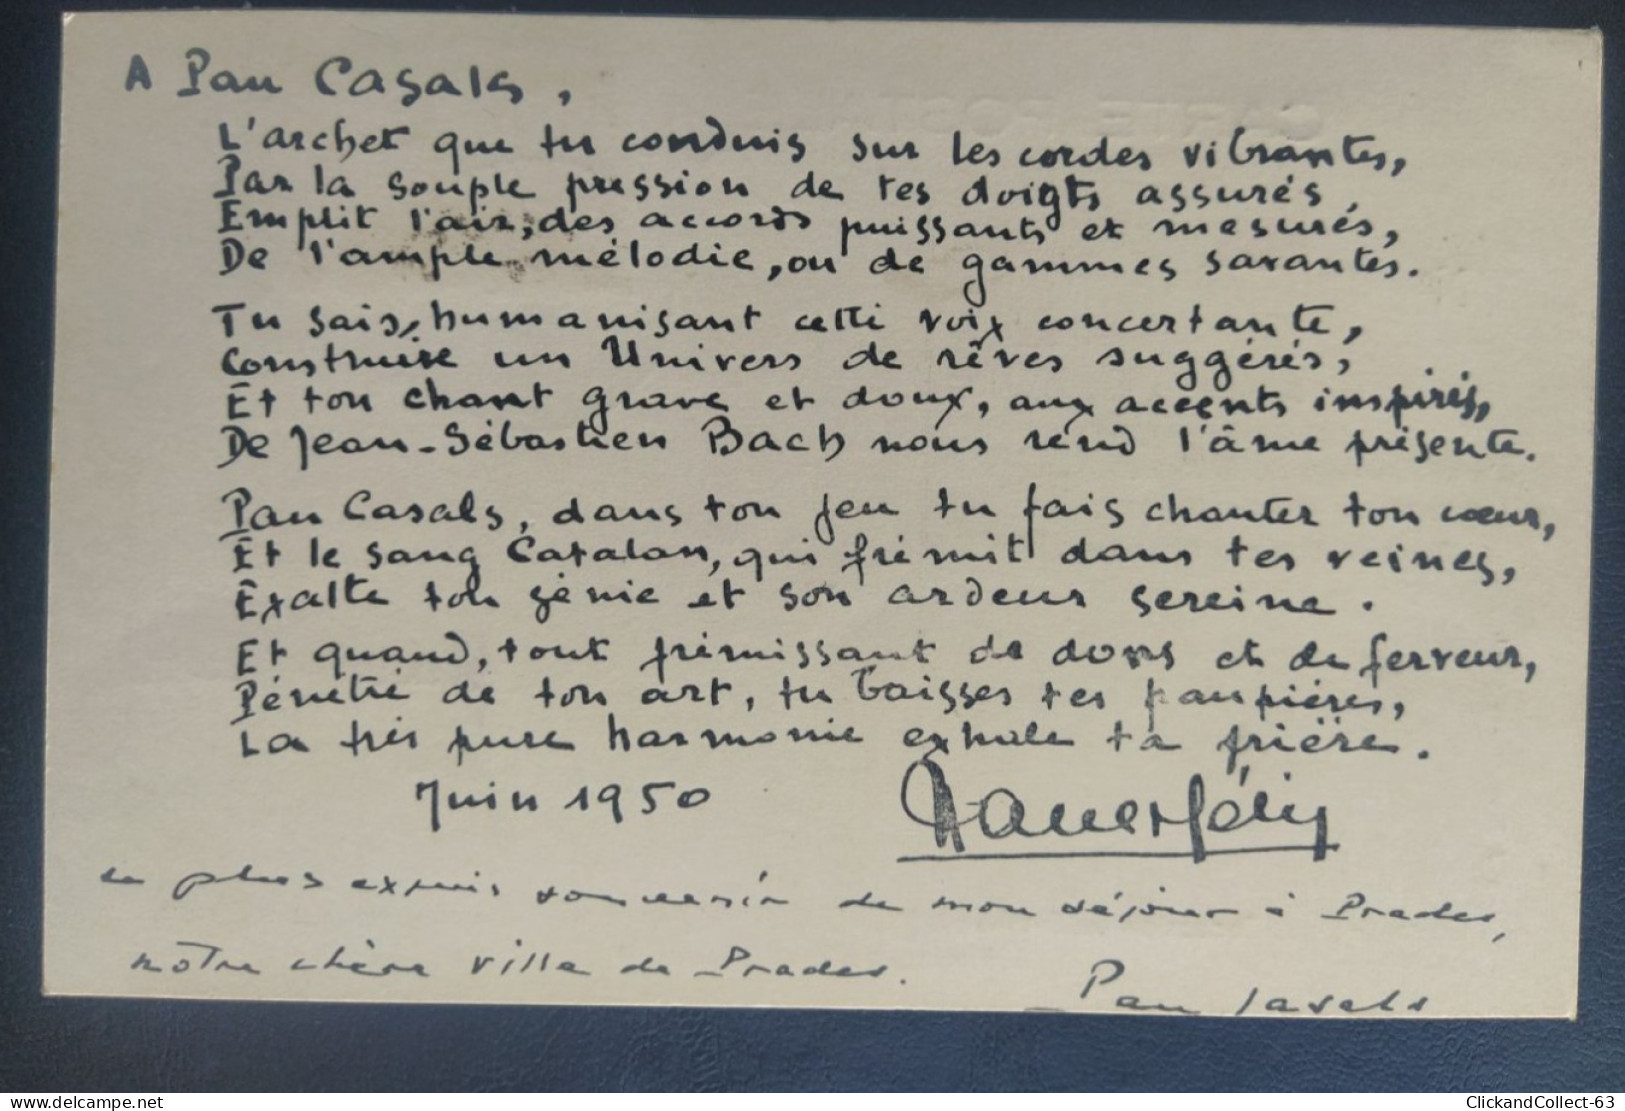 A Pau Casals,
L'archet que tu conduis sur les cordes vibrantes,
Par la souple pression de tes doigts assurés,
Emplit l'air, des accords puissants et mesurés,
De l'ample mélodie, ou de gammes savantes.
Tu sais, humanisant cette voix concertante,
Construire un Univers de rêves suggérés,
Et ton chant grave et doux, aux accents inspirés,
De Jean-Sébastien Bach nous rend l'âme présente.
Pau Casals, dans ton jeu tu fais chanter ton cœur,
Et le sang Catalan, qui frémit dans tes veines,
Exalte ton génie et son ardeur sereine.
Et quand, tout frémissant de dons et de ferveur,
Pénétré de ton art, tu baisses tes paupières,
La très pure harmonie exhale ta prière.
Juin 1950
plus exquis souvenir de mon séjour à Prades,
notre chère ville de Prades.
Pau Casals
CARTE POST
www.delcampe.net
ClickandCollect-63